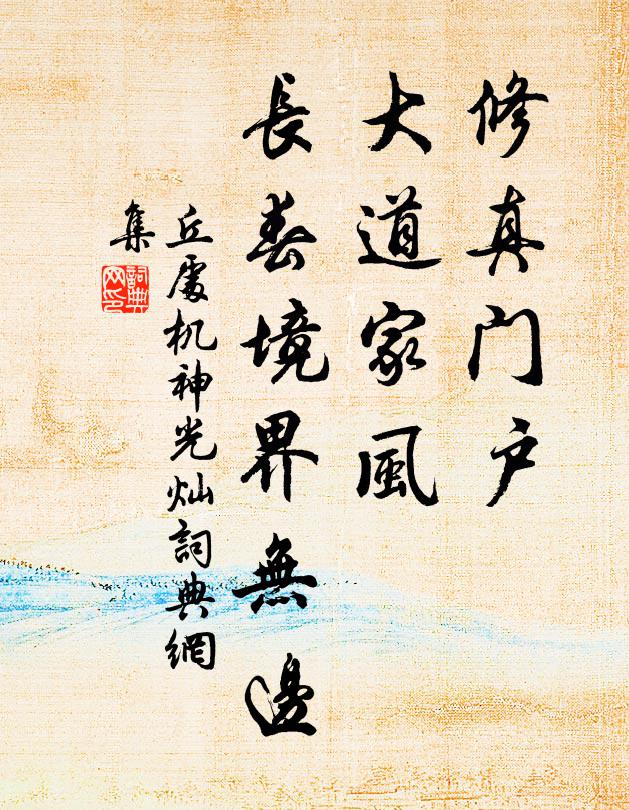 修真门户
大道家風
長春境界無邊
丘處机神光灿詞典網
集
詞典
网印